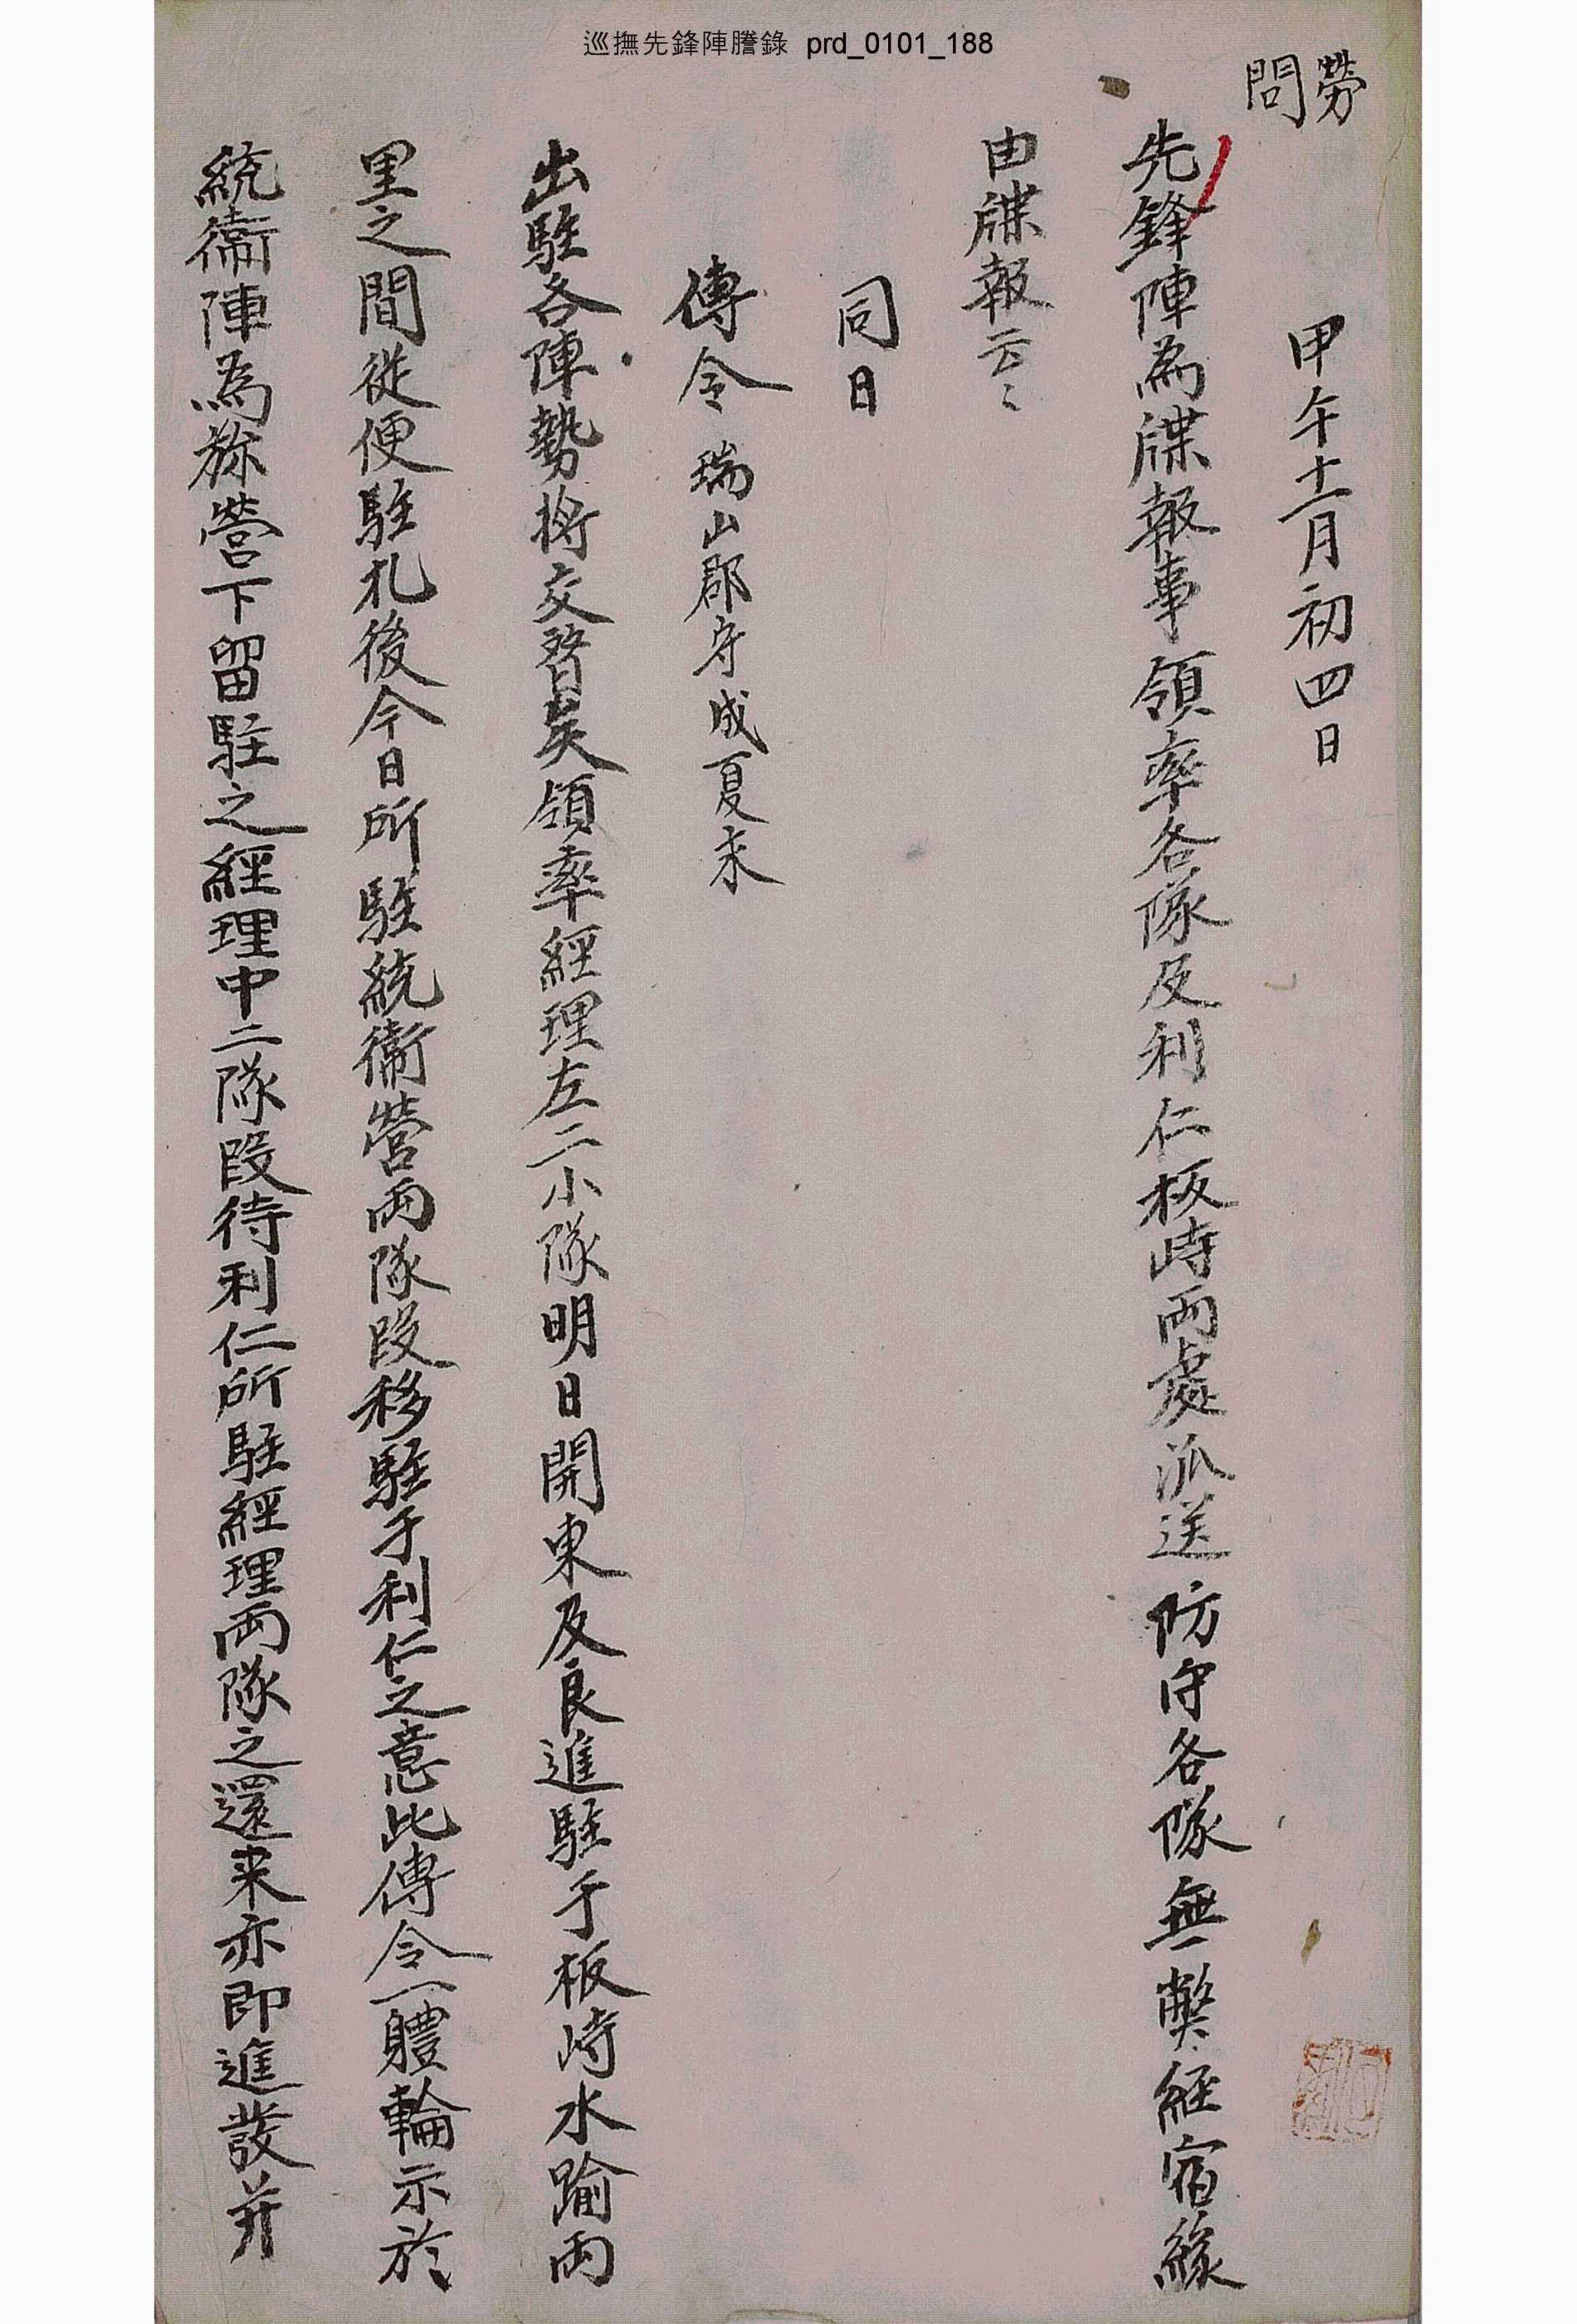 巡撫先鋒陣謄錄 prd_0101_188
勞
問
甲午十一月初四日
先鋒陣為牒報事領率各隊及利仁板峙兩處派送防守各隊無弊經宿緣
由牒報云云
同日
傳令 瑞山郡守成夏永
出駐各陣勢將交替矣領率經理左二小隊明日開東及良進駐于板峙水踰兩
里之間從便駐札後今日所駐統衛營兩隊段移駐于利仁之意此傳令一體輪示於
統衛陣為㫆營下留駐之經理中二隊段待利仁所駐經理兩隊之還来亦即進發并